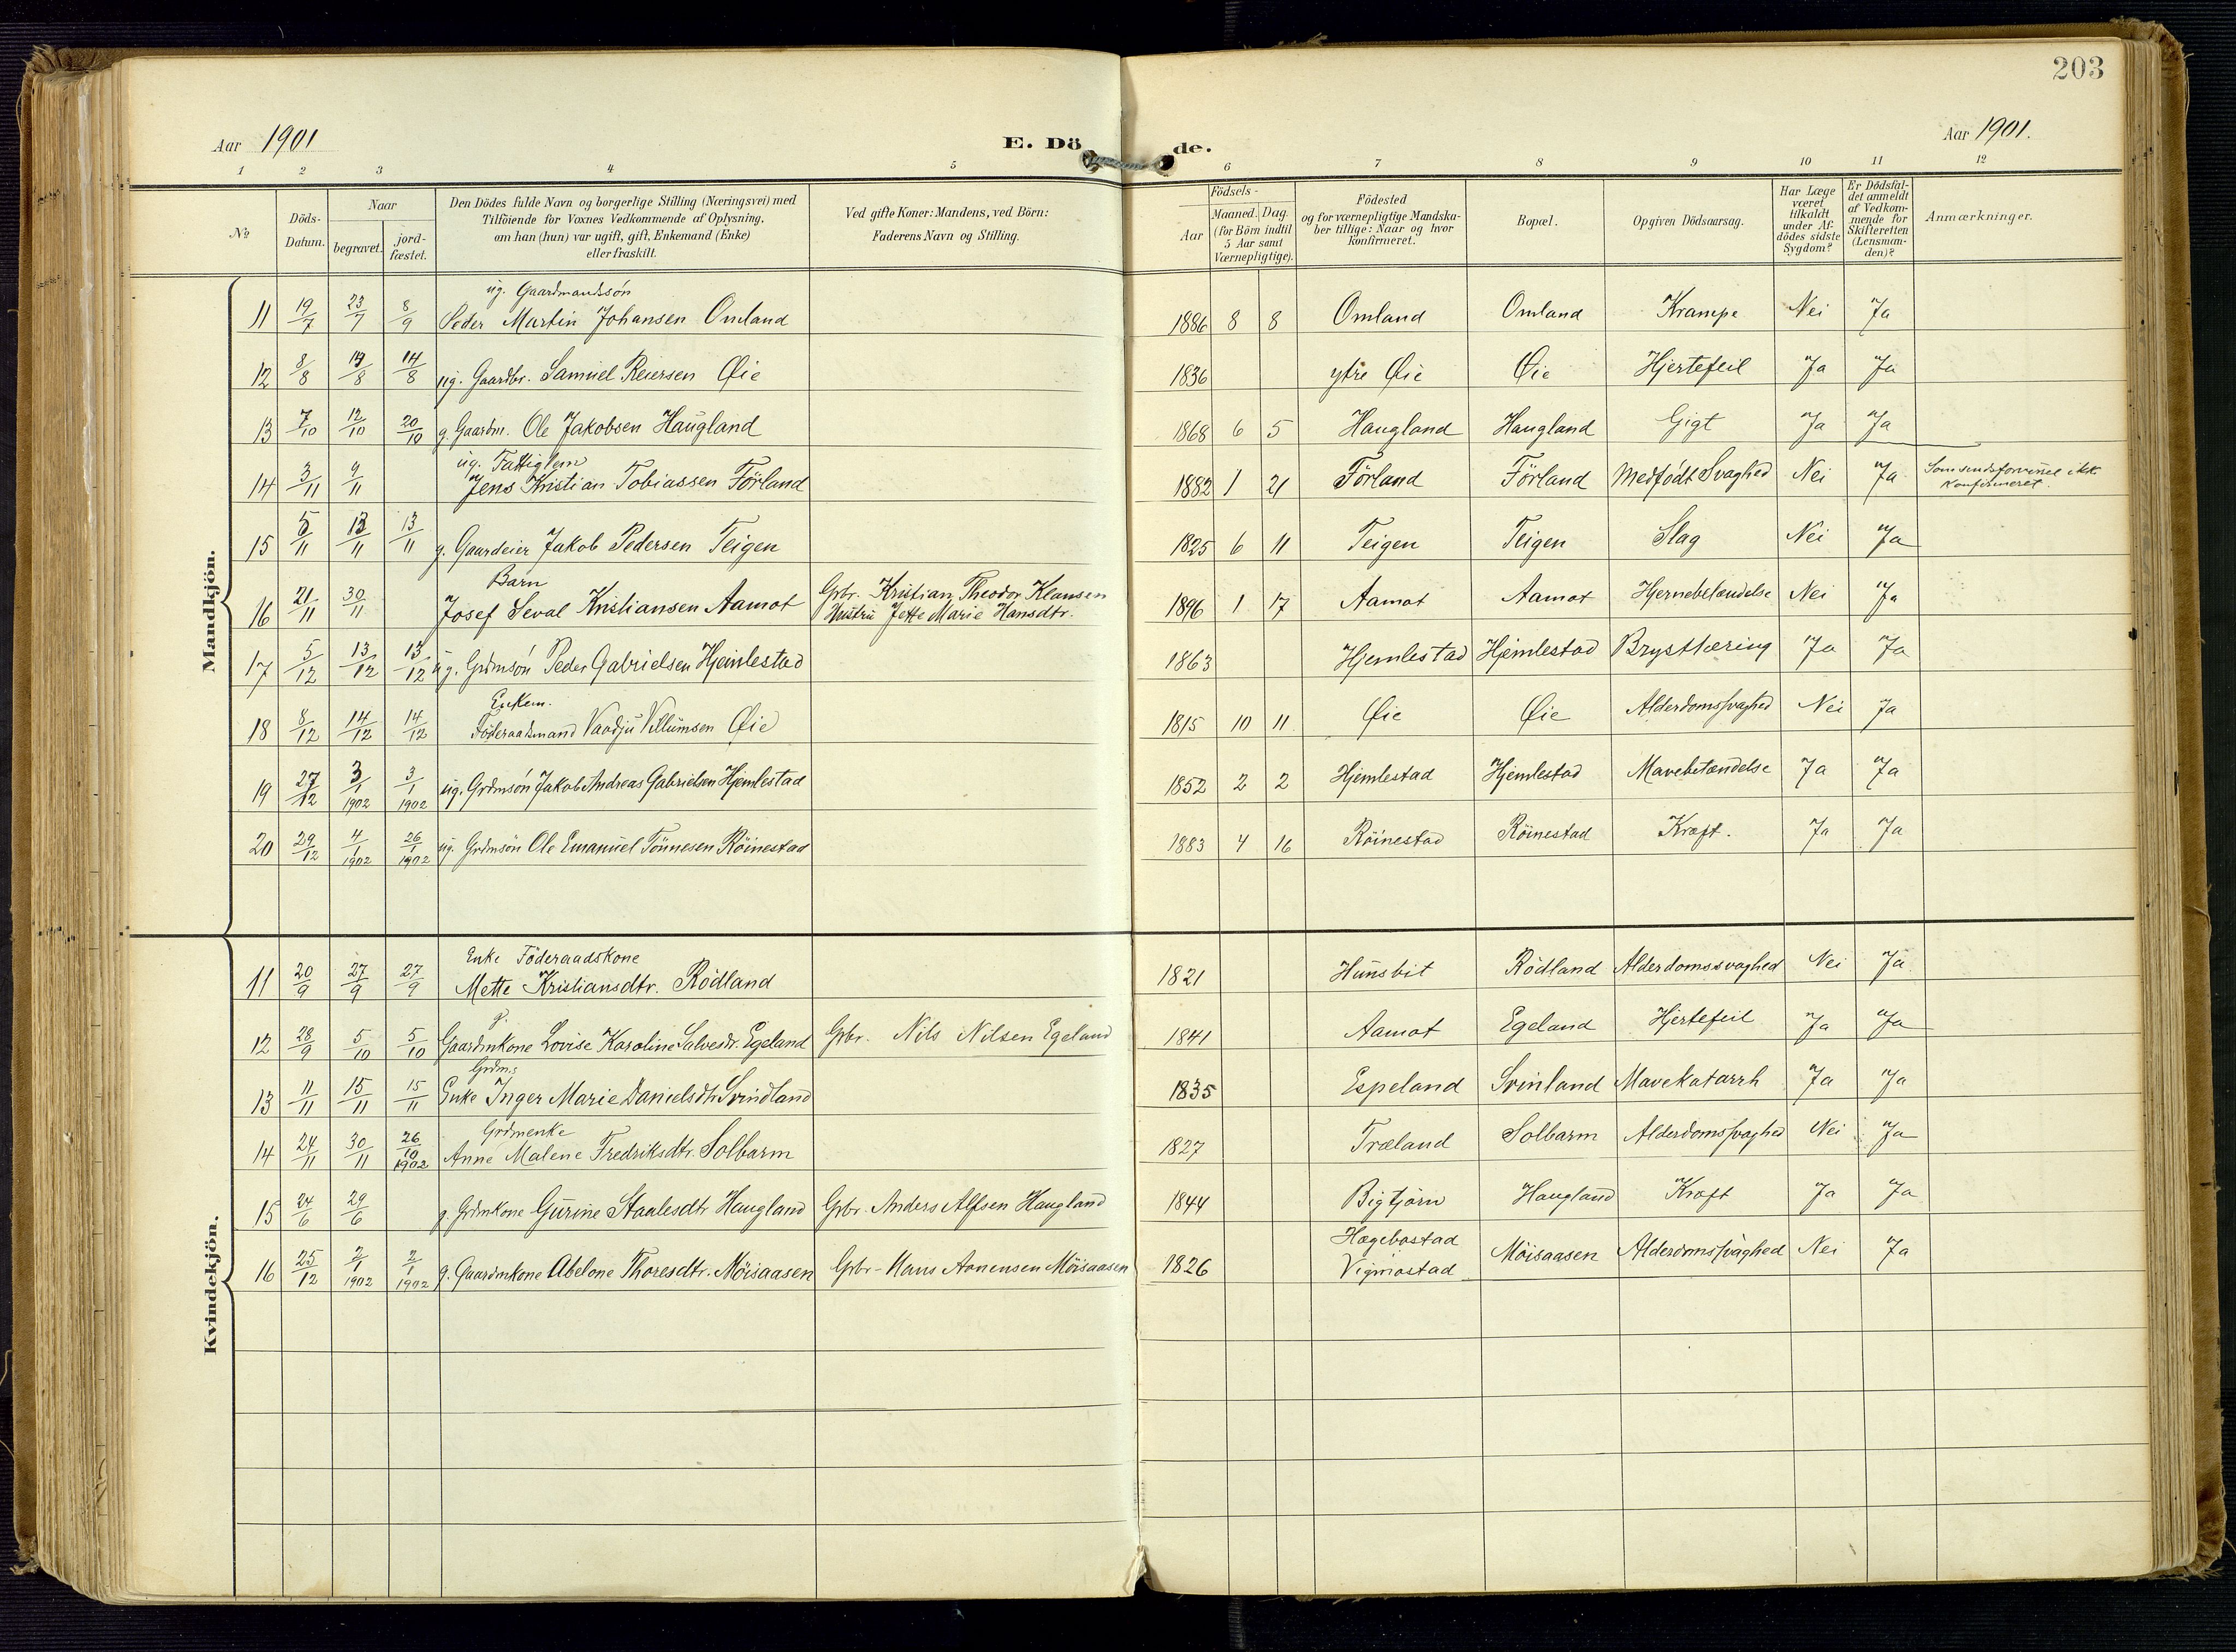 203
Aar 1901
E. Dö de.
Aar 1901.
1 2 3 4 5 6 7 8 9 10 11 12
No
Döds-Datum.
Naar
begravet.
jord-fæstet.
Den Dödes fulde Navn og borgerlige Stilling (Næringsvei) med
Tilföiende for Voxnes Vedkommende af Oplysning,
om han (hun) var ugift, gift, Enkemand (Enke)
eller fraskilt.
Ved gifte Koner: Mandens, ved Börn:
Faderens Navn og Stilling.
Födsels-
Aar
Maaned. Dag.
(for Börn indtil
5 Aar samt
Værnepligtige).
Födested
og for værnepligtige Mandska-
ber tillige: Naar og hvor
konfirmeret.
Bopæl.
Opgiven Dödsaarsag.
Har Læge
været
tilkaldt
under Af-
dödes sidste
Sygdom?
Er Dödsfal-
det anmeldt
af Vedkom-
mende for
Skifteretten
(Lensman-
den)?
Anmærkninger.
Mandkjön.
ug. Gaardmandssön
11 19/7 23/7 8/9 Peder Martin Johansen Omland 1886 8 8 Omland Omland Krampe Nei Ja
12 8/8 14/8 ug. Gaardbr. Samuel Reiersen Øie 1836 ytre Øie Øie Hjertefeil Ja Ja
13 7/10 12/10 20/10 g. Gaardm. Ole Jakobsen Haugland 1868 6 5 Haugland Haugland Gigt Ja Ja
ug. Fattiglem
14 3/11 9/11 Jens Kristian Tobiassen Förland 1882 1 21 Förland Förland Medfödt Svaghed Nei Ja Som sindsforvirret ikke
Konfirmeret.
15 5/11 13/11 13/11 g. Gaardeier Jakob Pedersen Teigen 1825 6 11 Teigen Teigen Slag Nei Ja
Barn
16 21/11 30/11 Josef Seval Kristiansen Aamot Gbr. Kristian Theodor Klausen
Hustru Jette Marie Hansdtr. 1896 1 17 Aamot Aamot Hjernebetændelse Nei Ja
17 5/12 13/12 13/12 ug. Grdmsön Peder Gabrielsen Hjemlestad 1863 Hjemlestad Hjemlestad Brysttæring Ja Ja
Enkem.
18 8/12 14/12 14/12 Föderaadsmand Vaadju Villumsen Øie 1815 10 11 Øie Øie Alderdomssvaghed Nei Ja
19 27/12 3/1 1902 3/1 1902 ug. Grdmsön Jakob Andreas Gabrielsen Hjemlestad 1852 2 2 Hjemlestad Hjemlestad Mavebetændelse Ja Ja
20 29/12 4/1 1902 26/1 1902 ug. Grdmsön Ole Emanuel Tönnesen Röinestad 1883 4 16 Röinestad Röinestad Kræft. Ja Ja
Kvindekjön.
Enke Föderaadskone
11 20/9 27/9 27/9 Mette Kristiansdtr. Rödland 1821 Hunsbit Rödland Alderdomssvaghed Nei Ja
g.
12 28/9 5/10 5/10 Gaardmkone Lovise Karoline Salvesdr. Egeland Gbr. Nils Nilsen Egeland 1841 Aamot Egeland Hjertefeil Ja Ja
Grdm.s
13 11/11 15/11 15/11 Enke Inger Marie Danielsdtr Svindland 1835 Espeland Svinland Mavekatarrh Ja Ja
Grdmenke
14 24/11 30/11 26/10 1902 Anne Malene Fredriksdtr. Solbarm 1827 Træland Solbarm Alderdomssvaghed Nei Ja
15 24/6 29/6 g. Grdmkone Gurine Staalesdtr Haugland Gbr. Anders Alfsen Haugland 1844 Bigtjörn Haugland Kræft Ja Ja
16 25/12 2/1 1902 2/1 1902 g. Gaardmkone Abelone Thoresdtr. Möisaasen Gbr. Hans Aanensen Möisaasen 1826 Hægebostad
Vigmostad Möisaasen Alderdomssvaghed Nei Ja